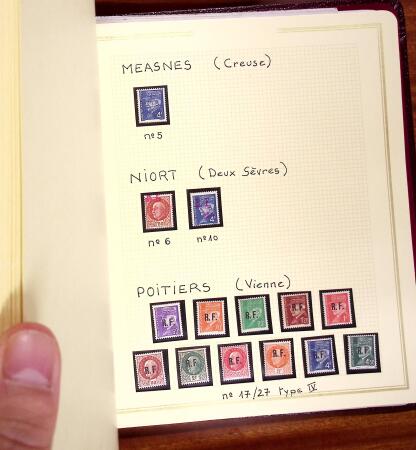 MEASNES (Creuse)
nº 5
NIORT (Deux Sèvres)
nº 6 nº 10
POITIERS (Vienne)
R.F. R.F. R.F. R.F. R.F.
R.F. R.F. R.F. R.F. R.F. R.F.
nº 17/27 type IV